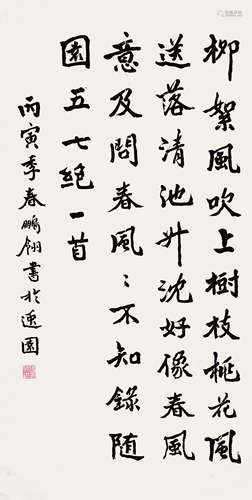 柳絮風吹上樹枝桃花風
送落清池升沈好像春風
意及問春風〻不知錄隨
園五七絕一首
丙寅季春鵬翎書於蓮園